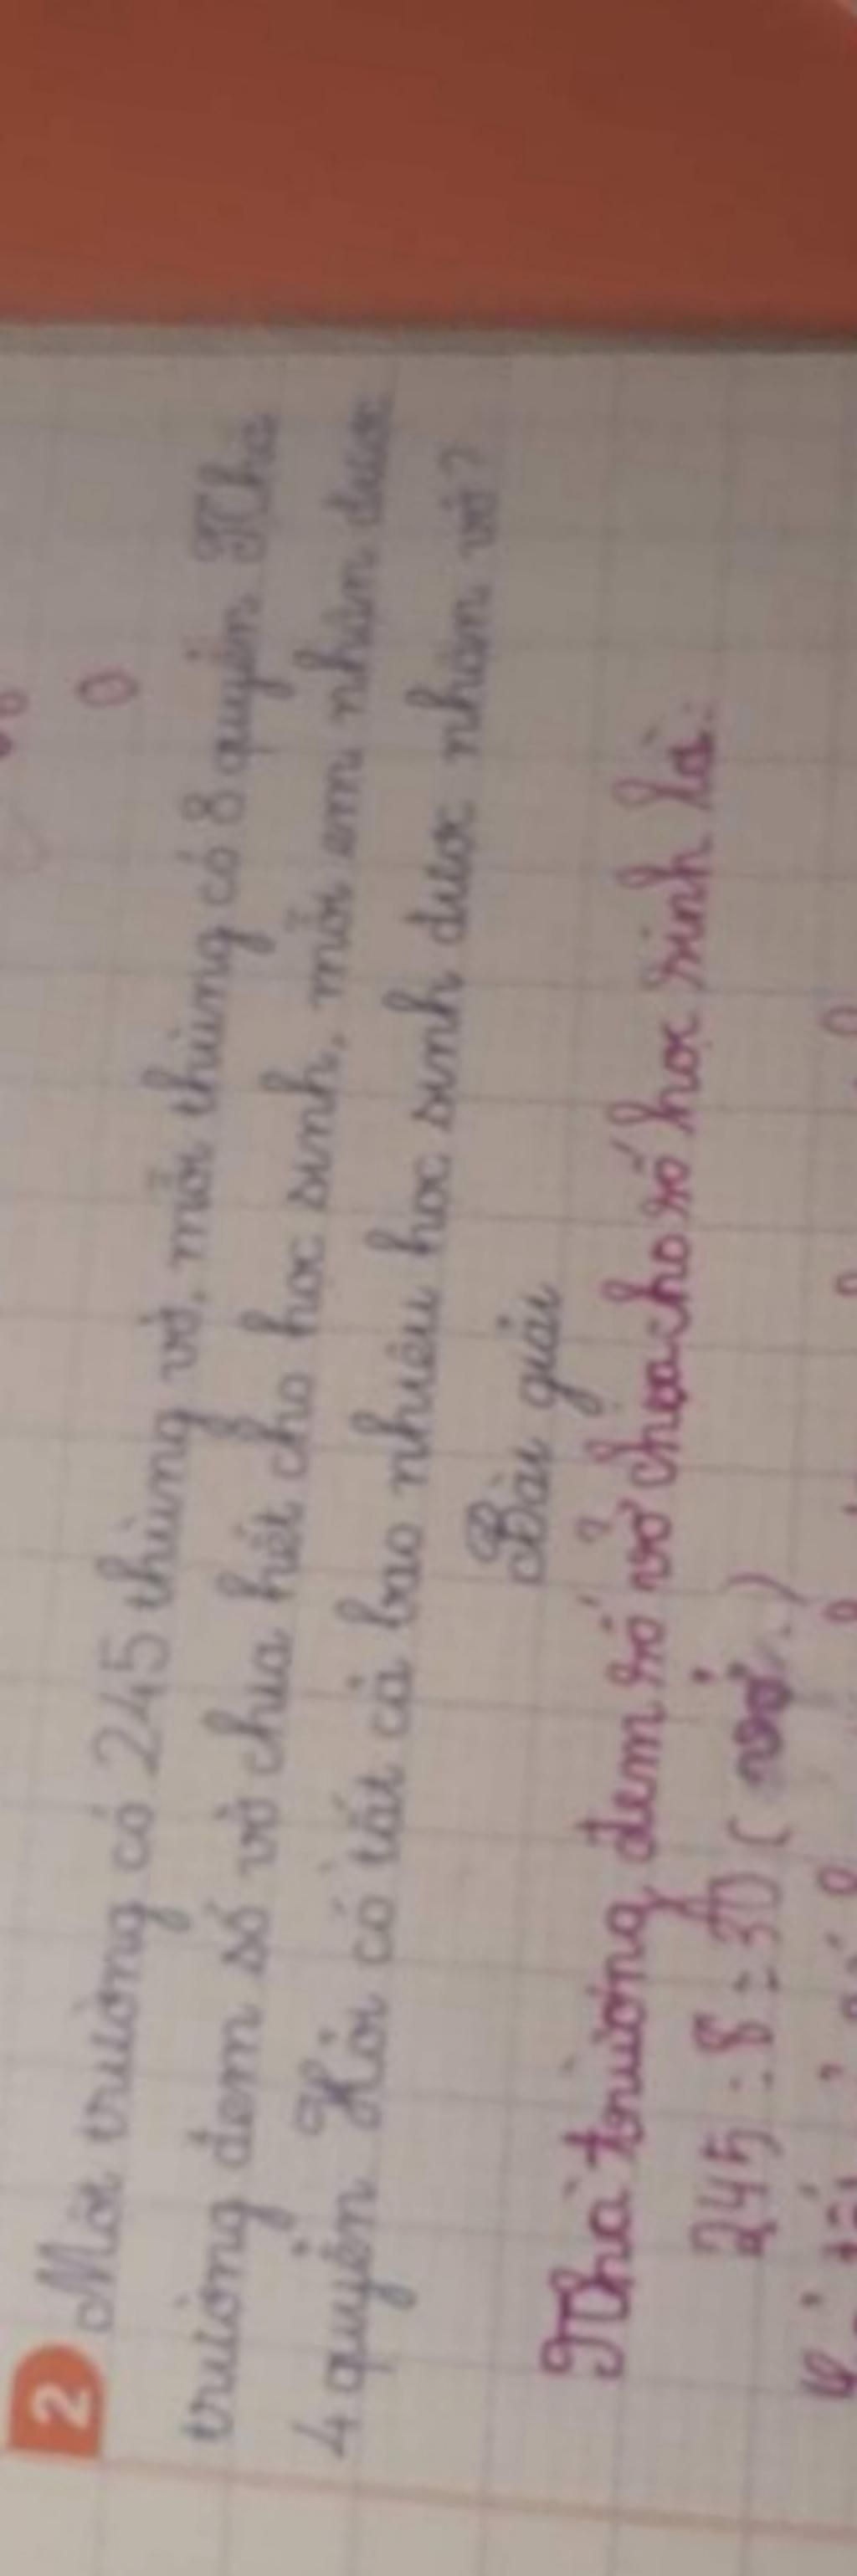 2 Một trường có 245 thùng vở, mỗi thùng có 8 quyển. Nhà
trường đem số vở chia hết cho học sinh, mỗi em nhận được
4 quyển. Hỏi có tất cả bao nhiêu học sinh được nhận vở?
Bài giải
Nhà trường đem số vở chia cho số học sinh là:
245 : 8 = 30 ( vở )
0